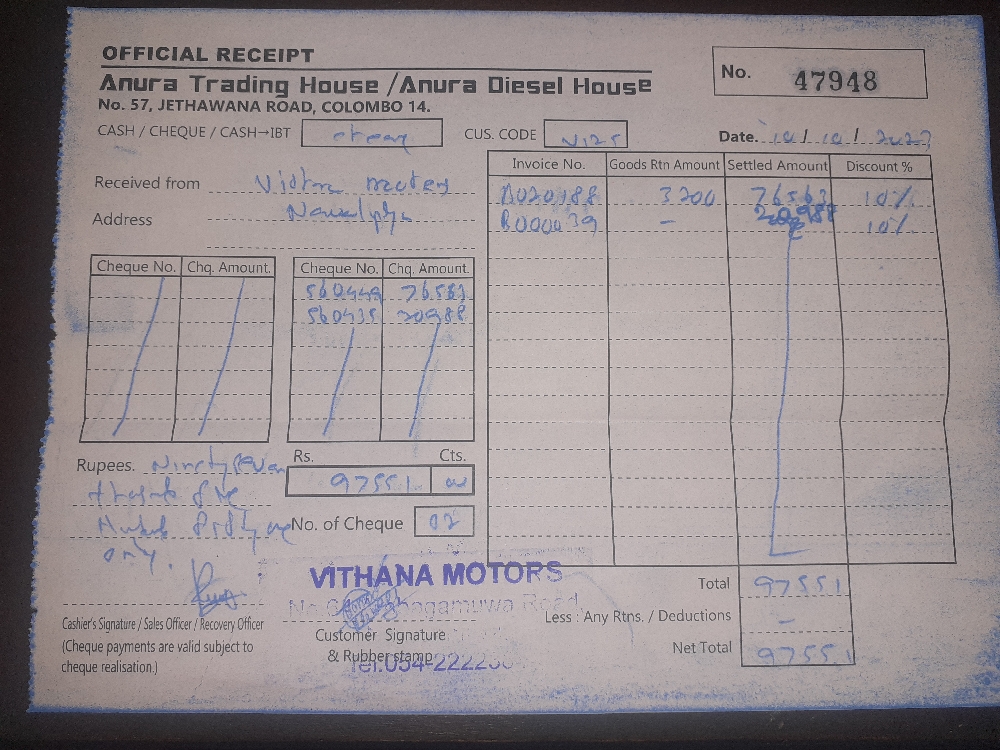 OFFICIAL RECEIPT
Anura Trading House /Anura Diesel House
No. 57, JETHAWANA ROAD, COLOMBO 14.
No. 47948
CASH / CHEQUE / CASH→IBT
CUS. CODE V125
Date. 10 / 10 / 2023
Received from
Address
Invoice No. Goods Rtn Amount Settled Amount Discount %
3200 76563 10%
B000039 - 20988 10%
Cheque No. Chq. Amount. Cheque No. Chq. Amount.
560449 76563
560435 20988
Rupees. Ninety seven
thousand five
hundred fifty one
only.
Rs. Cts.
97551
No. of Cheque 02
VITHANA MOTORS
Road
Cashier's Signature / Sales Officer / Recovery Officer
(Cheque payments are valid subject to
cheque realisation.)
Customer Signature
& Rubber stamp
Tel:054-2222
Total 97551
Less : Any Rtns. / Deductions -
Net Total 97551